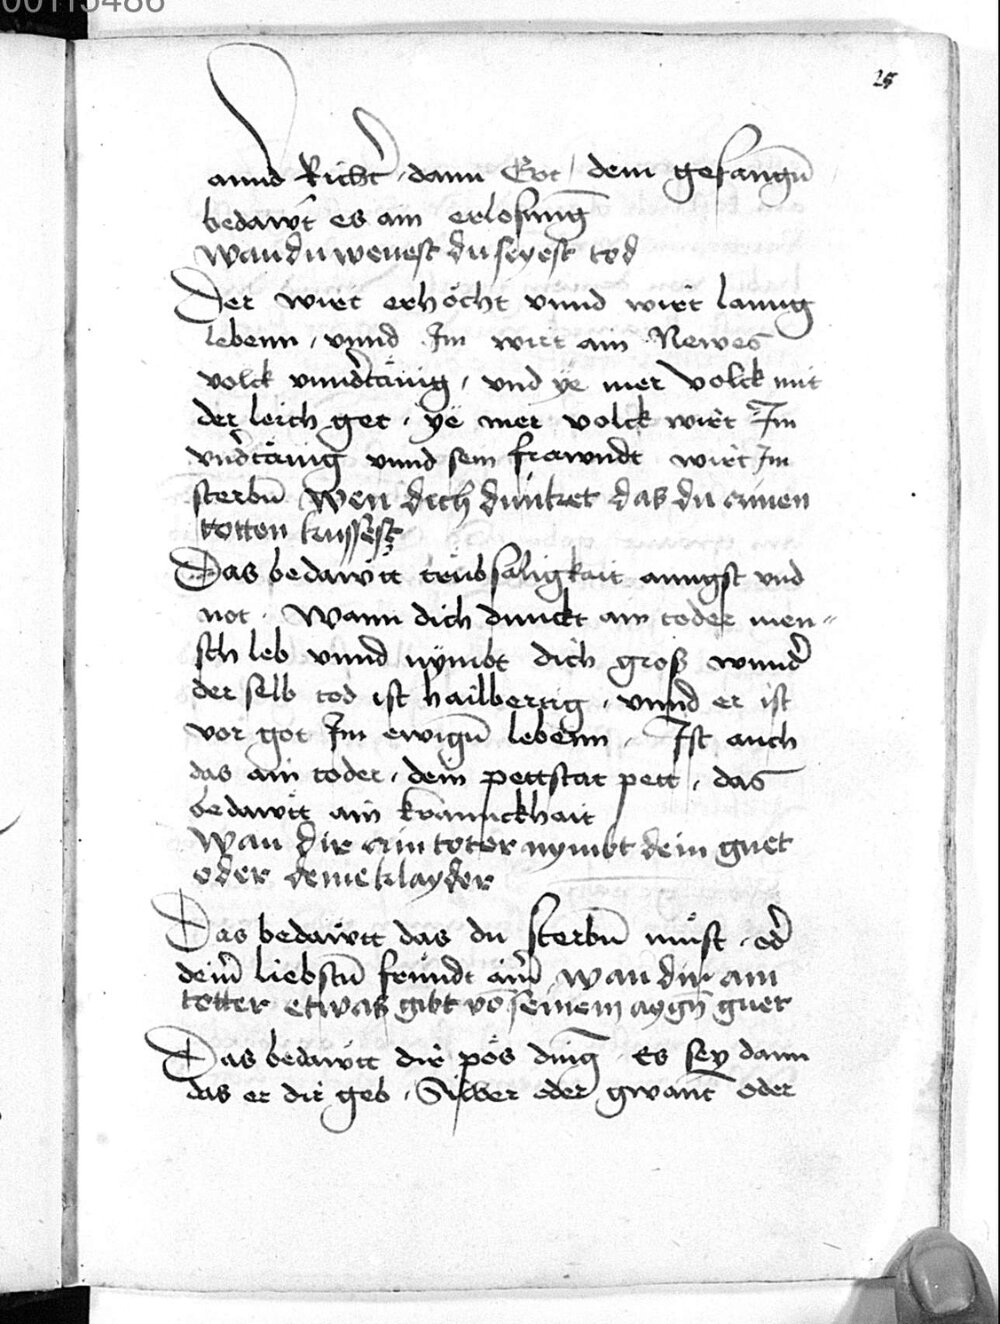 00115486
25
annd Richt᷑ , dann Ert / dem gefangn̄
bedawt es ain erlosung
Wan du wenest du seyest tod
Der wirt erhöcht vnnd wirt lanng
lebenn , vnnd Im wirt ain Newes
volck vnnd᷑tänig , vnd ye mer volck mit
der leich get , ye mer volck wirt Im
vnd᷑tänig vnnd sein frawndt wirt Im
sterbn̄ Wen dich dunket das du ainen
totten kussest
Das bedawtt trübsäligkait anngst vnd
not . Wann dich dunckt ain toder men-
sch leb vnnd nymbt dich groß wund᷑
der selb tod ist hailbertig , vnnd er ist
vor got Im ewign̄ lebenn , Ist auch
das ain toder , dem pettstat pett , das
bedawtt ain krannckhait
Wan dir ain toter nymbt dein guet
oder deine klayder
Das bedawtt das du sterbn̄ must , od᷑
dein᷑ liebstn̄ freundt ain᷑ Wan dir ain
totter etwas gibt vō seinem aygn̄ guet
Das bedawtt dir pös ding es sey dann
das er dir geb , Silber oder gwant oder